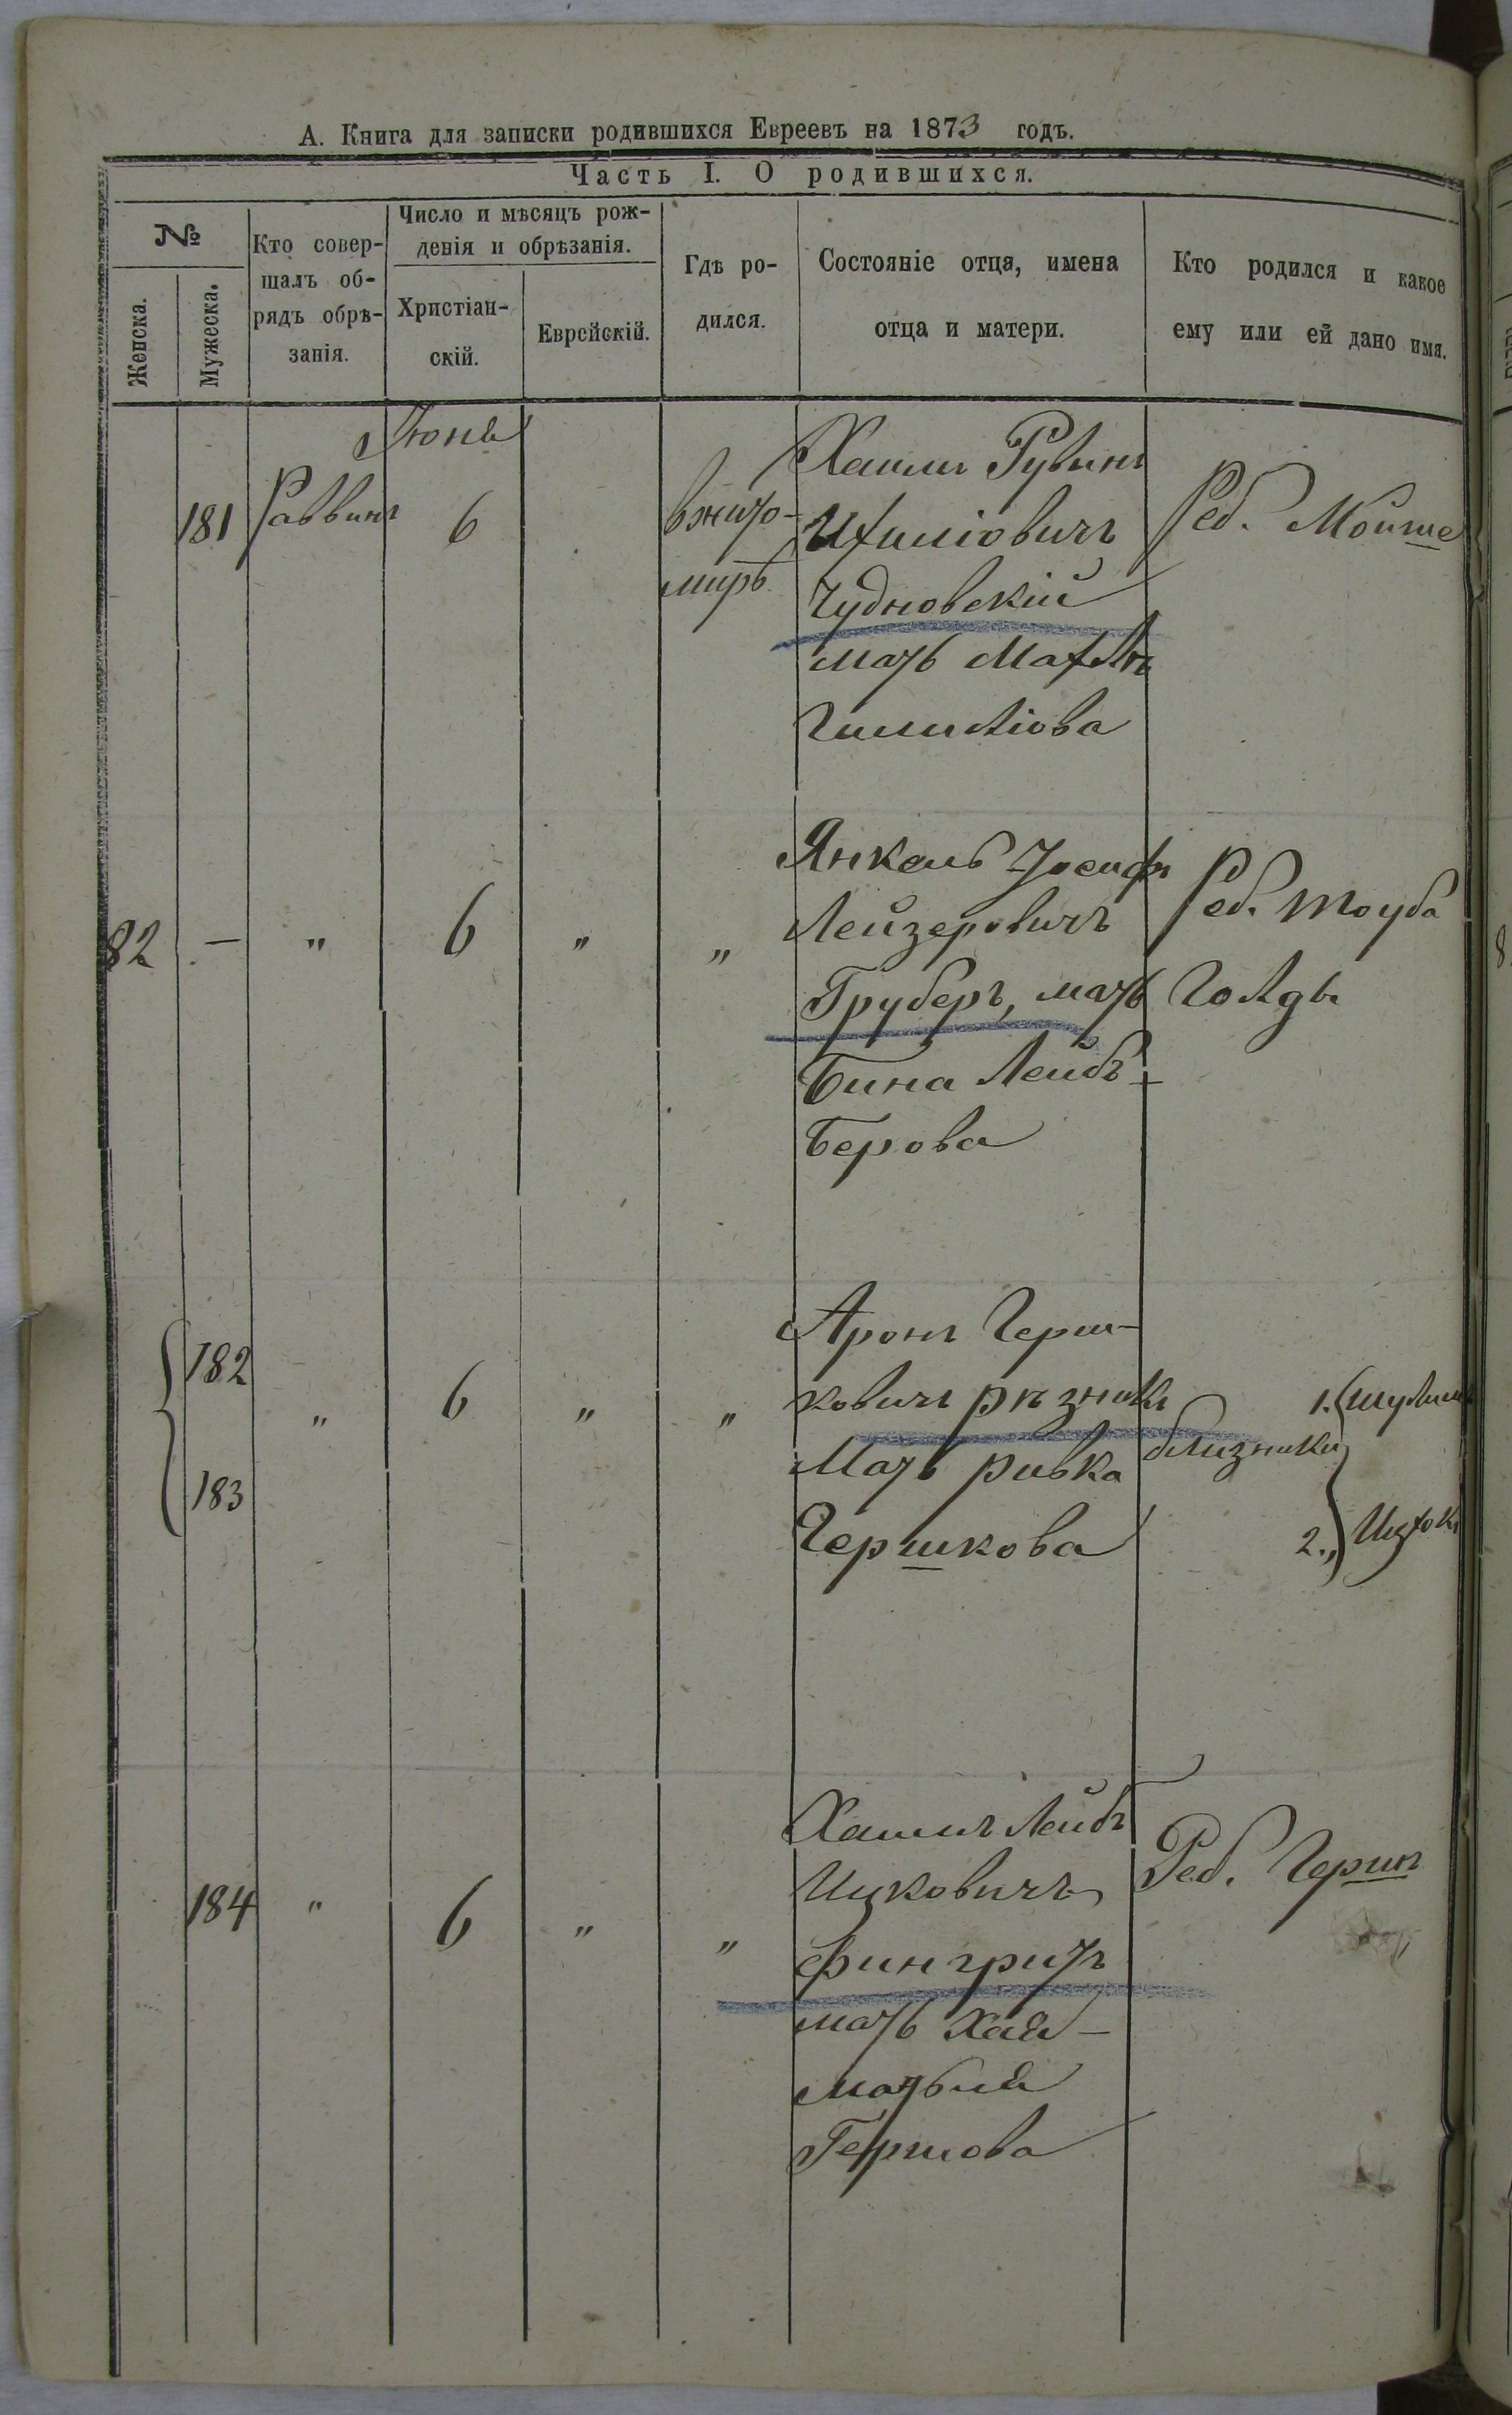 А. Книга для записки родившихся Евреевъ на 1873 годъ.
Часть I. О родившихся.
№
Женска.
Мужеска.
Кто совер-
шалъ об-
рядъ обрѣ-
занія.
Число и мѣсяцъ рож-
денія и обрѣзанія.
Христіан-
скій.
Еврейскій.
Гдѣ ро-
дился.
Состояніе отца, имена
отца и матери.
Кто родился и какое
ему или ей дано имя.
Іюнь
181
Раввинъ
6
в жито-
мирѣ
Хаимъ Рувинъ
Ихиліовичъ
Чудновскій
мать Махля
Реб. Мойше
82
—
"
6
"
"
Янкель Іосифъ
Лейзеровичъ
Груберъ, мать
Бина Лейбъ-
Берова
Реб. Тоуба
Голда
182
183
"
6
"
"
Аронъ Герш-
ковичъ рѣзникъ
Мать ривка
Гершкова
близники
1.
2.,
Ицхокъ
184
"
6
"
"
Хаимъ Лейбъ
Ицковичъ
Фингритъ
мать Хая-
Гершова
Реб. Гершъ